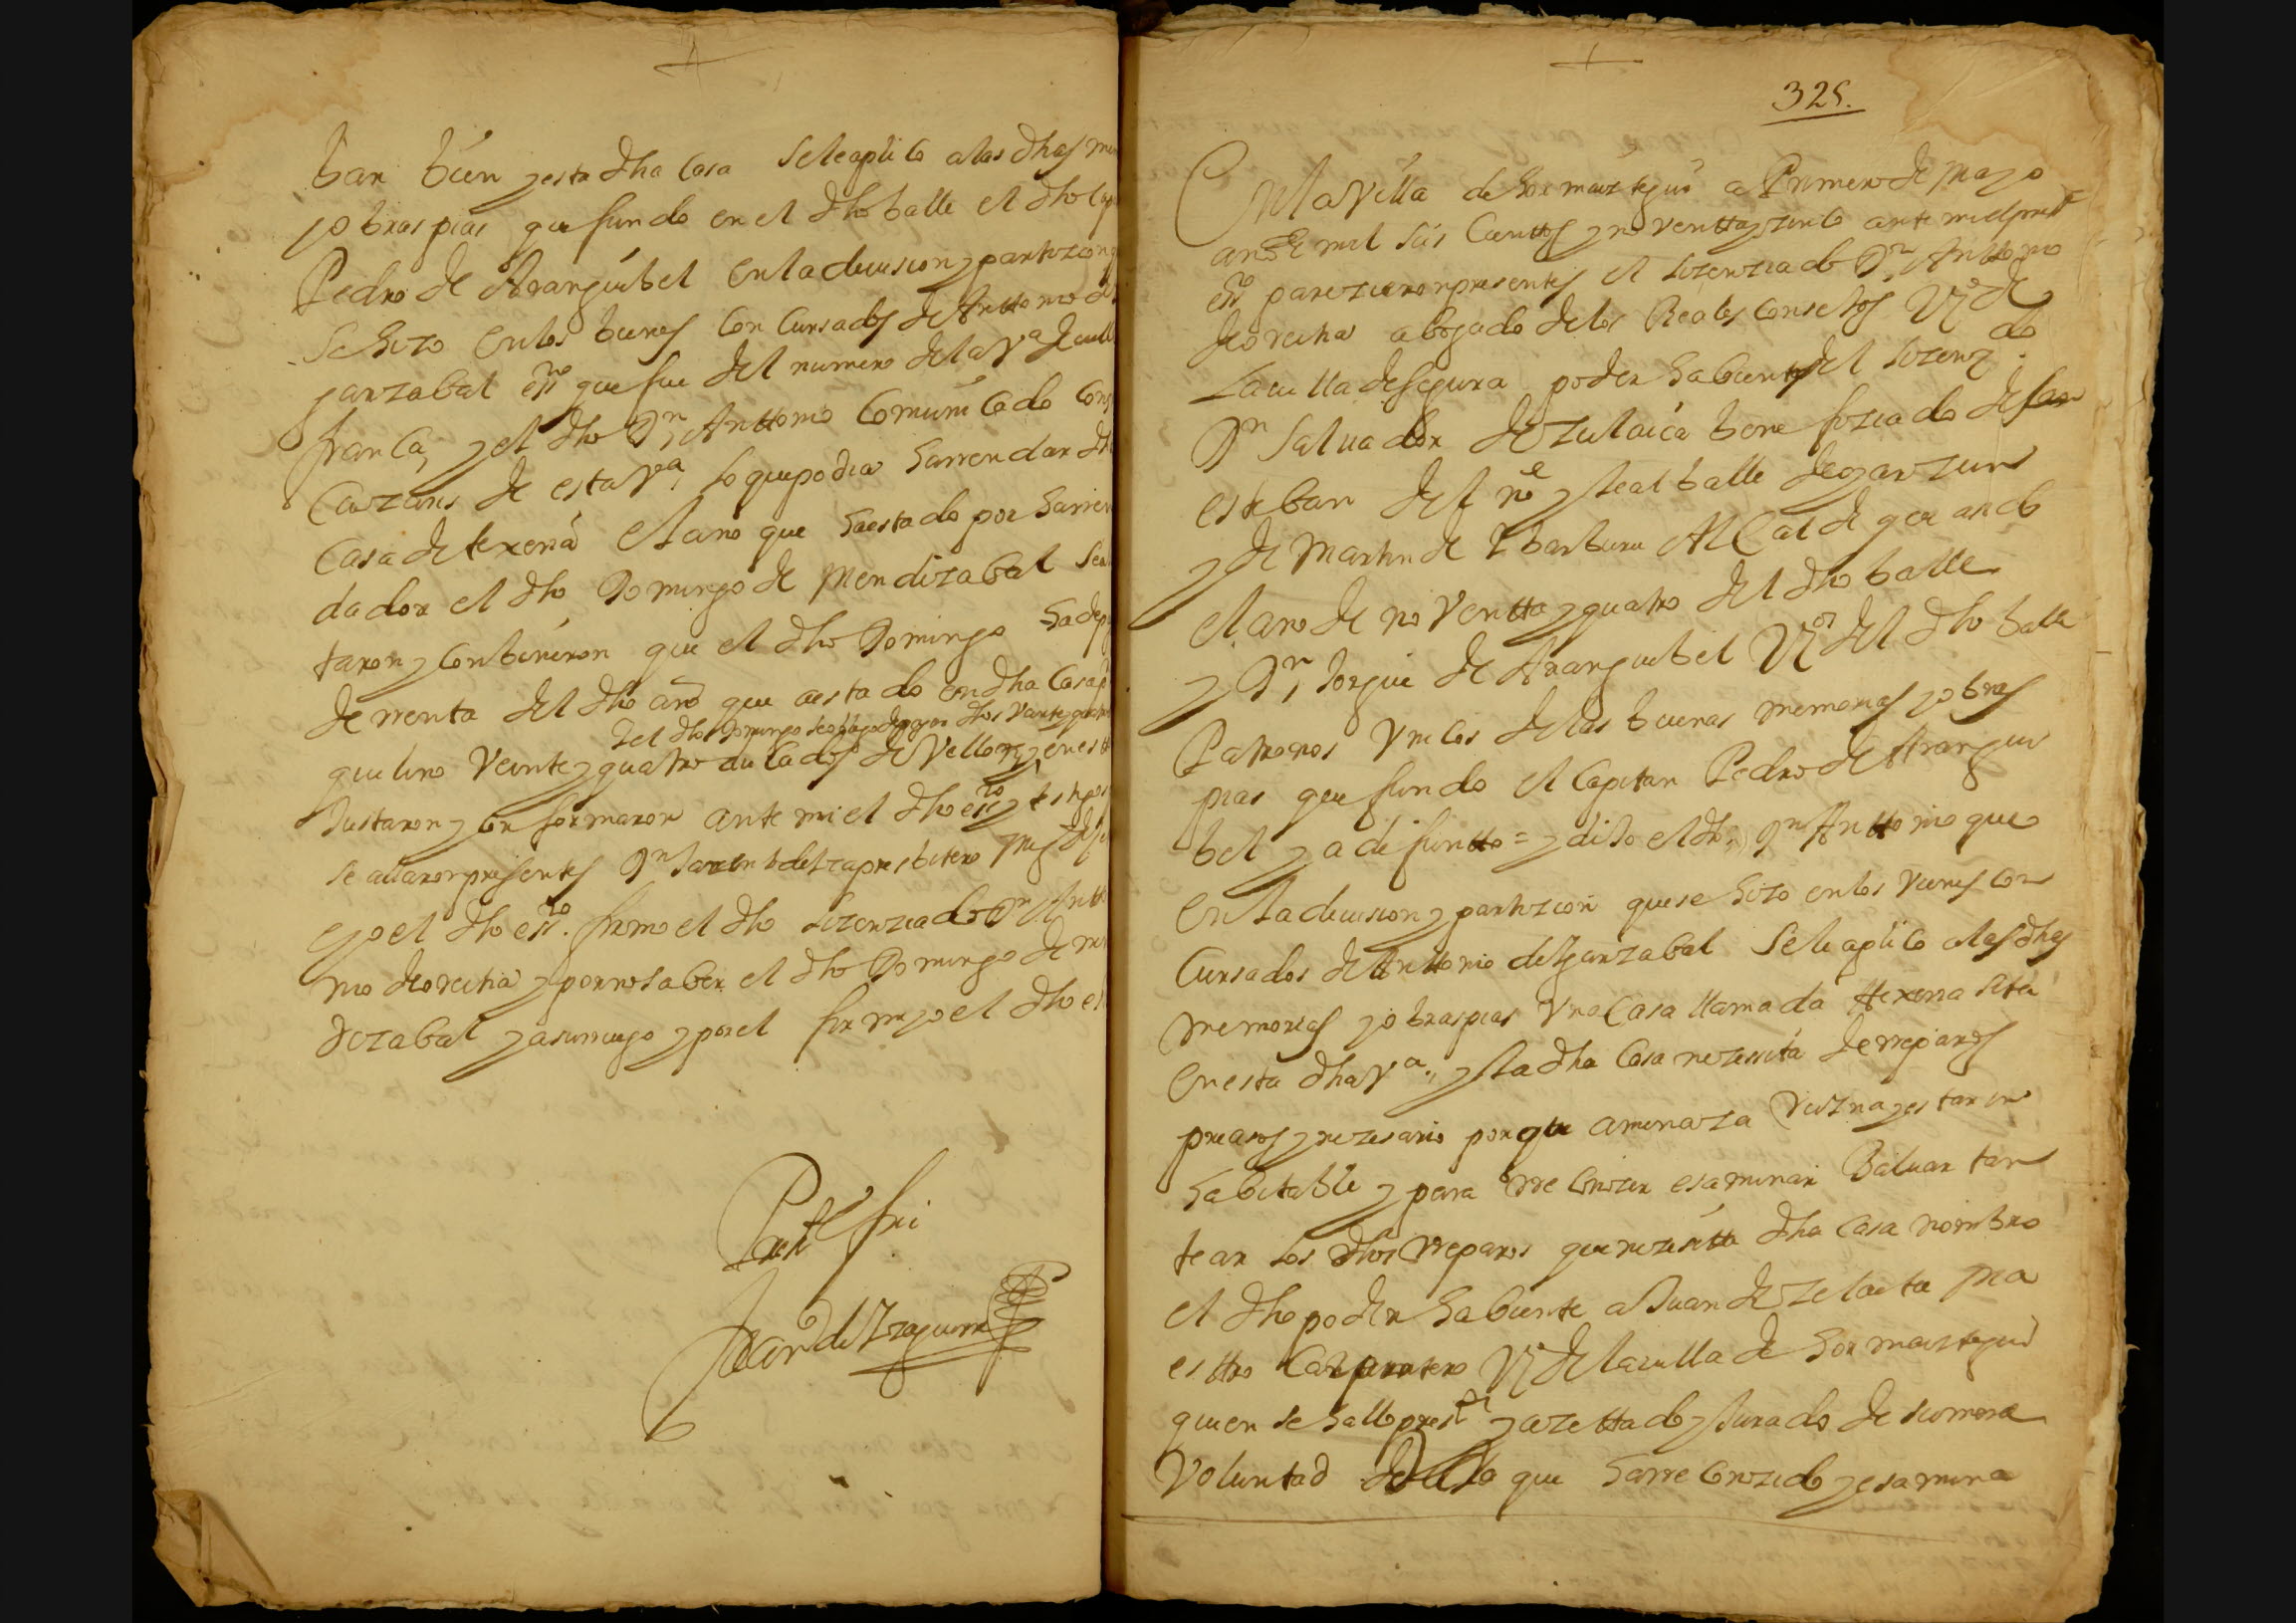 ban bien y esta dha Casa se le aplico a las dhas
y obras pias que fundo en el dho balle el dho
Pedro de Aranguibel en la diuision y partizion
se hizo en los bienes Concursados de Anttonio de
garzabal essno que fue del numero de la Va de
franca, y el dho Dn Anttonio Comunicado con
Cazauis de esta Va, lo que podia harrendar
Casa de texeria el ano que ha estado por harren
dador el dho Domingo de Mendizabal
taron y Conbinieron que el dho Domingo ha de
de rrenta del dho ano que a estado en dha Casa
y el dho Domingo se obligo de pagar dhos Veinte y quatro
quilino Veinte y quatro ducados de Vellon, y en
Justaron y Conformaron ante mi el dho essno y testigos
se allaron presentes Dn presbitero
e yo el dho essno. firmo el dho lizenziado Dn Antt
nio de orecha y por no saber el dho Domingo de
dizabal y a su ruego y por el firme yo el dho
Presste fui
Juan de Yzaguirre
325.
En la Villa de Hormaiztegui a Primero de Mayo
ano de mil seis Cienttos y noventta y zinco ante mi el presste
essno parezieron presentes el lizenziado Dn Anttonio
de orecha abogado de los Reales Consejos Vº de
La uilla de segura poder habiente del lizenzdo
Dn Saluador de Zulaica benefiziado de san
esteban del noe y leal balle de oyarzun
y de Martin de Ybarburu Alcalde que a sido
el ano de noventta y quatro del dho balle
y Dn Jorgue de Aranguibel Vos del dho balle
Patronos Vnicos de las buenas memorias y obras
pias que fundo el Capitan Pedro de Arangui
bel ya difuntto = y dijo el dho Dn Anttonio que
en la diuision y partizion que se hizo en los vienes Con
Cursados de Anttonio de Ygarzabal se le aplico a las dhas
memorias y obras pias Vna Casa llamada texeria sita
en esta dha Va., y la dha Casa nezessita de rreparos
prezisos y nezesario porque amenaza Ruizna y estar in
habitable y para rreConozer esaminar Baluar tan
tear los dhos rreparos que nezesitta dha Casa nombro
el dho poder habiente a Juan de Zelaeta ma
esttro Carpintero Vº de la uilla de Hormaiztegui
quien se hallo presste y azettado y Jurado de su mera
Voluntad que harreConozido y esamina